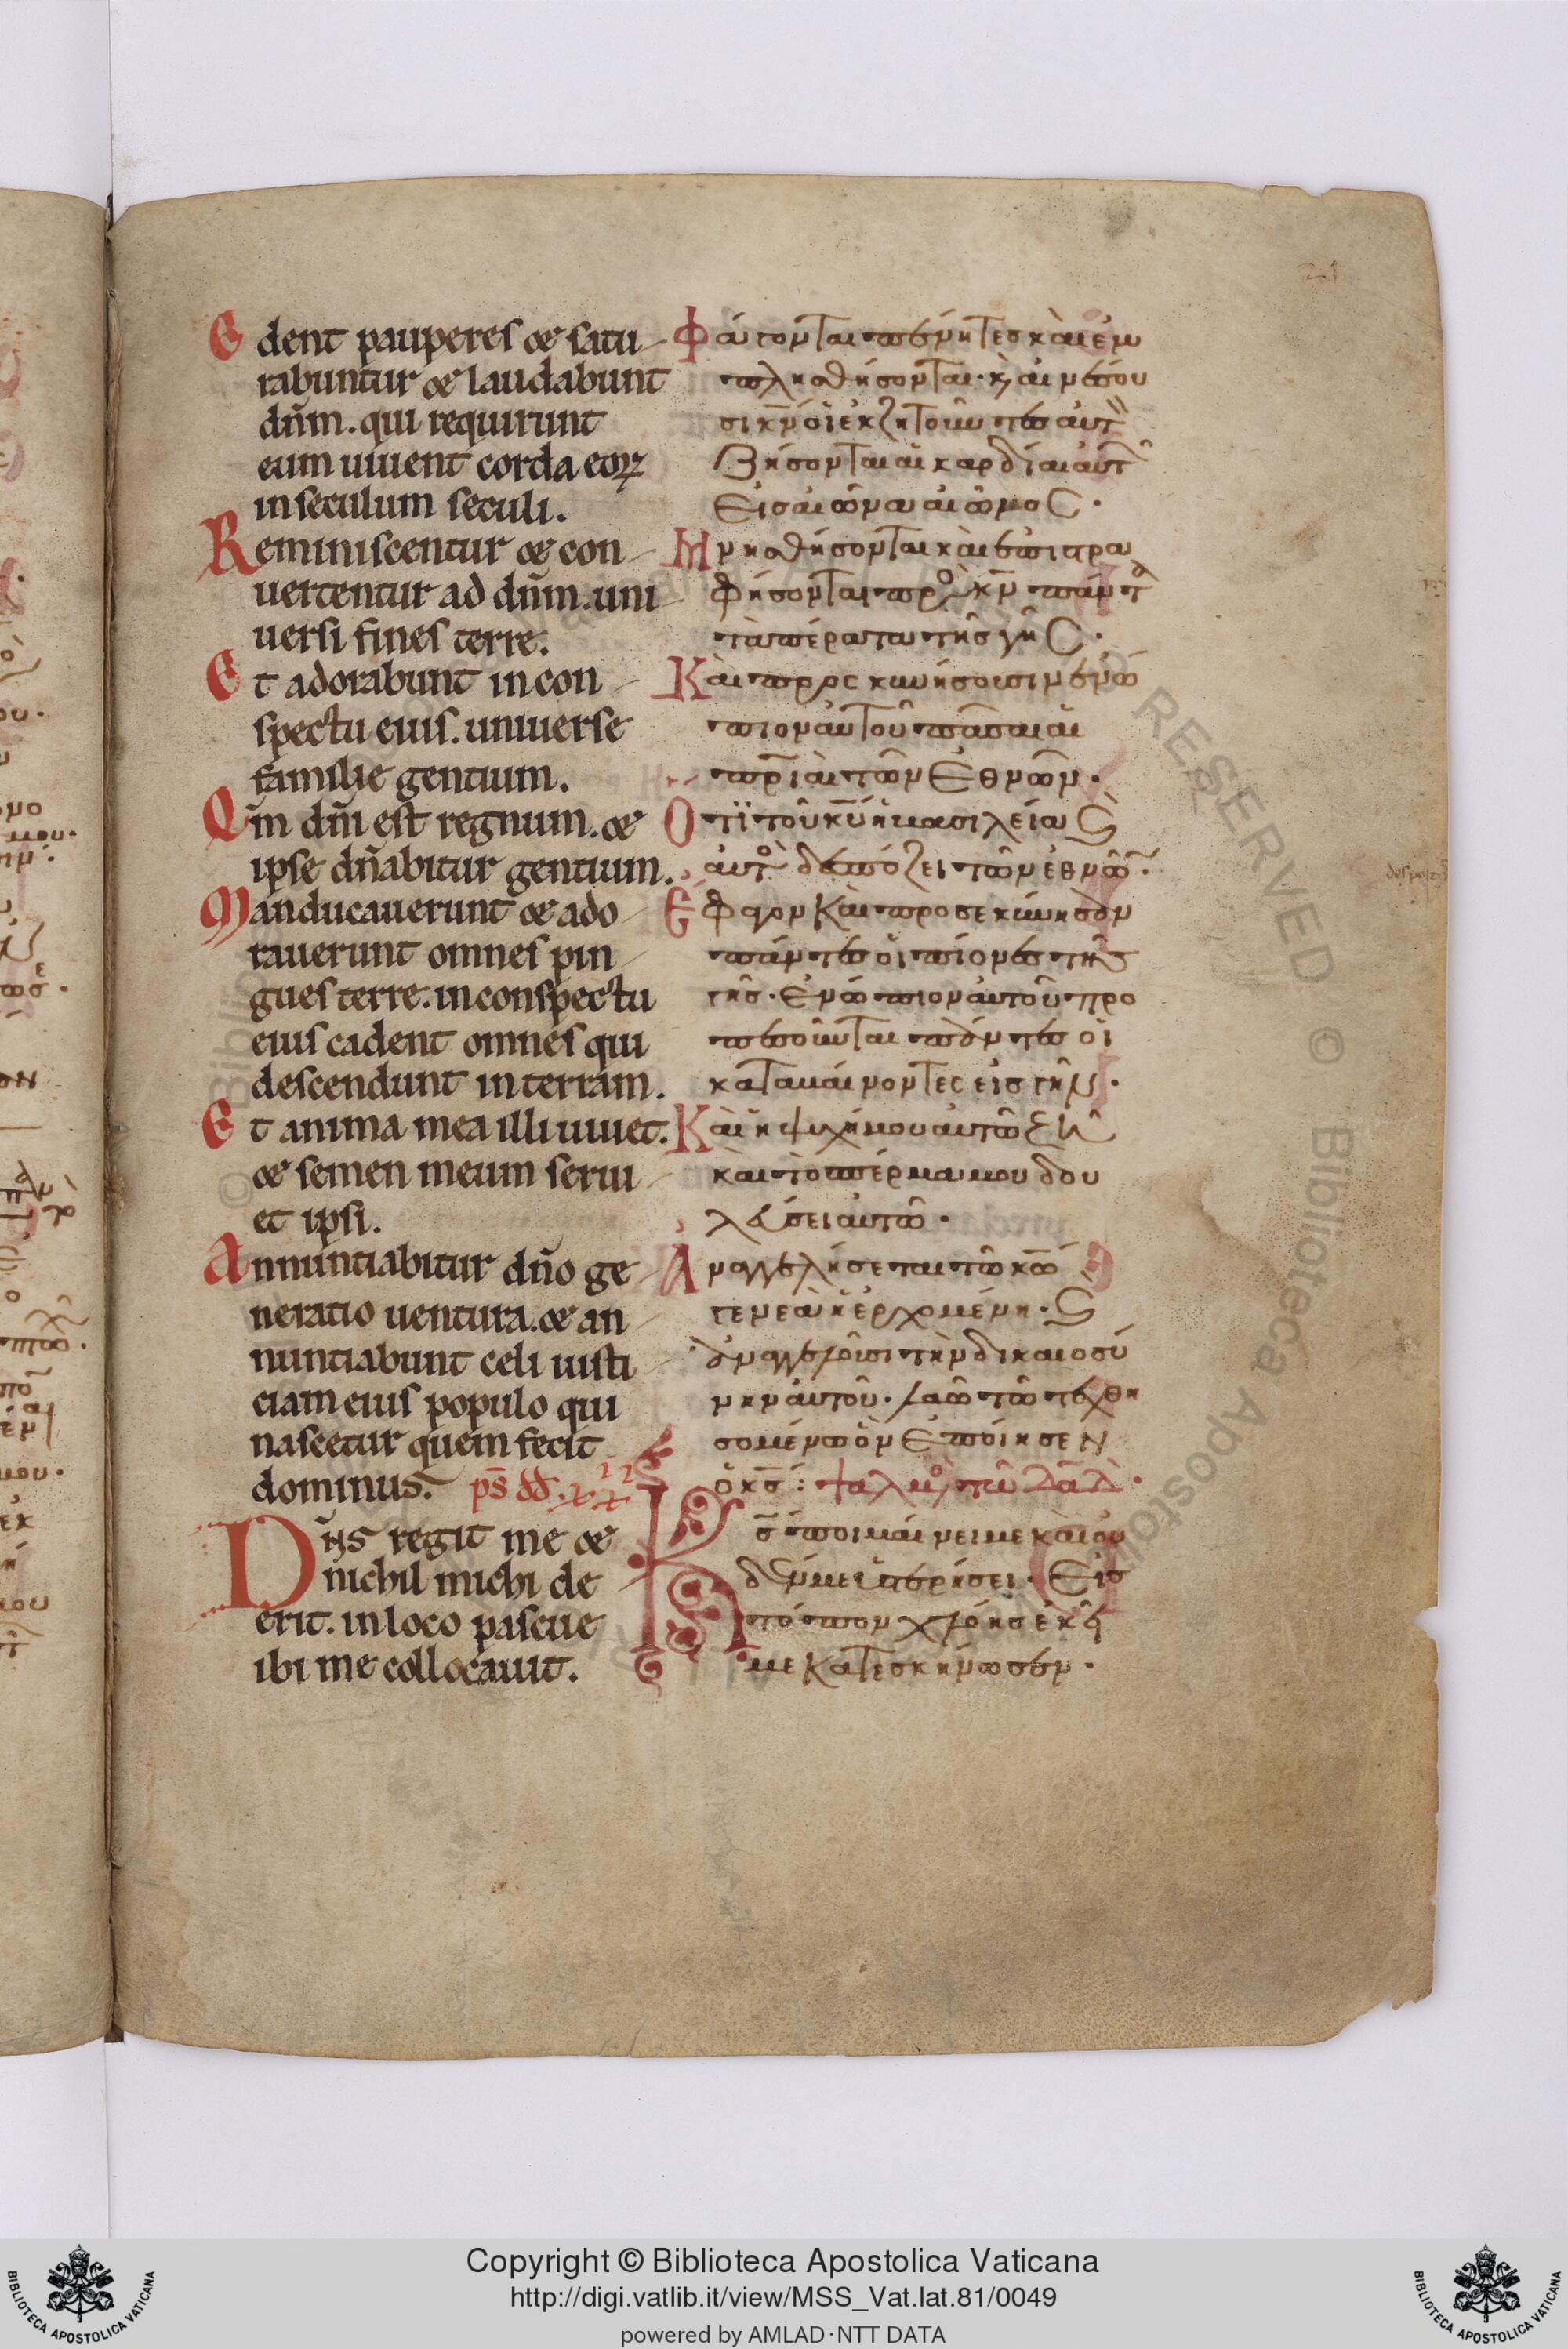 Edent pauperes & satu
rabuntur & laudabunt
dn̄m. qui requirunt
eum uiuent corda eoꝝ
in seculum seculi.
Reminiscentur & con
uertentur ad dn̄m. uni
uersi fines terre.
Et adorabunt in con
spectu eius. uniuerse
familie gentium.
Qm̄ dn̄i est regnum. &
ipse dn̄abitur gentium.
Manducauerunt & ado
rauerunt omnes pin
gues terre. in conspectu
eius cadent omnes qui
descendunt in terram.
Et anima mea illi uiuet.
& semen meum serui
et ipsi.
Annuntiabitur dn̄o ge
neratio uentura. & an
nuntiabunt celi iusti
ciam eius populo qui
nascetur quem fecit
dominus. ps̄ dd.
Dn̄s regit me &
nichil michi de
erit. in loco pascue
ibi me collocauit.
Φάγονται πένητες καὶ ἐμ
πλησθήσονται· κ, αἰνέσου
σι κ̄ν οἱ ἐκζητοῦντες αὐτ
Ζήσονται αἱ καρδίαι αὐτ
Εἰς αἰῶνα αἰῶνοσ·
Μνησθήσονται καὶ ἐπιστρα
φήσονται πρὸς κ̄ν πάντα
τὰ πέρατα τῆς γῆς·
Καὶ προσκυνήσουσιν ἐνώ
πιον αὐτοῦ πᾶσαι αἱ
πρ̄ιαὶ τῶν Ἐθνῶν·
Οτι τοῦ κ̄υ ἡ βασιλεία
αὐτὸ δεσπόζει τῶν ἐθνῶ·
Ἔφαγον Καὶ προσεκύνησαν
πάντες οἱ πίονες τῆς
γῆς· Ἐνώπιον αὐτοῦ προ
πεσοῦνται πάντες οἱ
καταβαίνοντες εἰς γῆν·
Καὶ ἡ ψυχή μου αὐτῶ ζῆ
καὶ τὸ σπέρμα μου δου
λεύσει αὐτῶ·
Αναγγελήσεται τῶ κ̄ω
γενεὰ ἡ ἐρχομένη·
ἀναγγελοῦσι τὴν δικαιοσύ
νην αὐτοῦ· λαῶ τῶ τεχθη
σομένω ὃν Ἐποίησεν
ὁ κ̄ς: ψαλμὸ τῶ Δᾱδ·
Κ̄ς ποιμαίνει με καὶ οὐ
δέν με ὑστερήσει· Εἰς
τόπον χλόης ἐκεῖ
με Κατεσκήνωσεν·
Copyright © Biblioteca Apostolica Vaticana
http://digi.vatlib.it/view/MSS_Vat.lat.81/0049
powered by AMLAD·NTT DATA
BIBLIOTECA APOSTOLICA VATICANA
BIBLIOTECA APOSTOLICA VATICANA